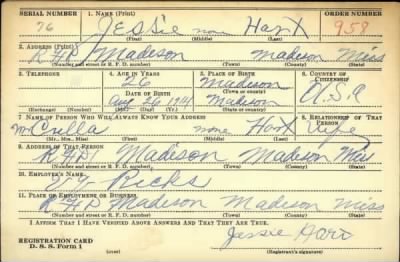 SERIAL NUMBER 1. NAME (Print) ORDER NUMBER
76 JESSIE none Hart 958
(First) (Middle) (Last)
2. ADDRESS (Print)
RFD Madison Madison Miss
(Number and street or R. F. D. number) (Town) (County) (State)
3. TELEPHONE 4. AGE IN YEARS 5. PLACE OF BIRTH 6. COUNTRY OF CITIZENSHIP
26 Madison
DATE OF BIRTH U.S.A
Aug 26 1914 Madison
(Exchange) (Number) (Mo.) (Day) (Yr.) (State or country)
7. NAME OF PERSON WHO WILL ALWAYS KNOW YOUR ADDRESS 8. RELATIONSHIP OF THAT PERSON
Mrs none Hart Wife
(Mr., Mrs., Miss) (First) (Middle) (Last)
9. ADDRESS OF THAT PERSON
RFD Madison Madison Miss
(Number and street or R. F. D. number) (Town) (County) (State)
10. EMPLOYER'S NAME
Ricks
11. PLACE OF EMPLOYMENT OR BUSINESS
RFD Madison Madison Miss
(Number and street or R. F. D. number) (Town) (County) (State)
I AFFIRM THAT I HAVE VERIFIED ABOVE ANSWERS AND THAT THEY ARE TRUE.
REGISTRATION CARD Jessie Hart
D. S. S. Form 1 (over) (Registrant's signature)